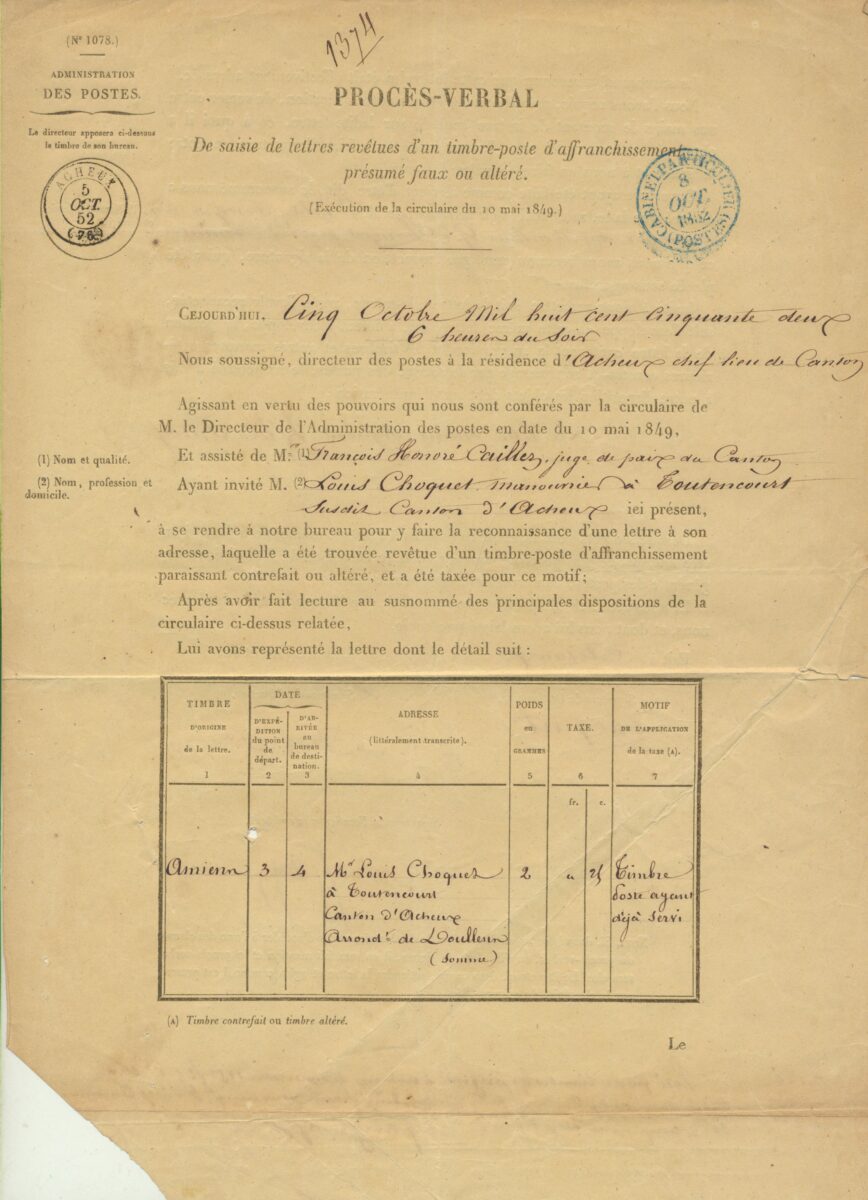 (N° 1078.)
1374
ADMINISTRATION
DES POSTES.
Le directeur apposera ci-dessous
le timbre de son bureau.
ACHEUX
5
OCT.
52
(76)
PROCÈS-VERBAL
De saisie de lettres revêtues d'un timbre-poste d'affranchissement
présumé faux ou altéré.
(Exécution de la circulaire du 10 mai 1849.)
CABINET PARTICULIER
8
OCT.
1852
(POSTES)
CEJOURD'HUI, Cinq Octobre Mil huit cent cinquante deux
6 heures du soir
Nous soussigné, directeur des postes à la résidence d'Acheux chef lieu de Canton
Agissant en vertu des pouvoirs qui nous sont conférés par la circulaire de
M. le Directeur de l'Administration des postes en date du 10 mai 1849,
(1) Nom et qualité.
Et assisté de M. (1) François Honoré Caillez, juge de paix du Canton
(2) Nom, profession et
domicile.
Ayant invité M. (2) Louis Choquet manouvrier à Toutencourt
susdit Canton d'Acheux ici présent,
à se rendre à notre bureau pour y faire la reconnaissance d'une lettre à son
adresse, laquelle a été trouvée revêtue d'un timbre-poste d'affranchissement
paraissant contrefait ou altéré, et a été taxée pour ce motif;
Après avoir fait lecture au susnommé des principales dispositions de la
circulaire ci-dessus relatée,
Lui avons représenté la lettre dont le détail suit :
TIMBRE
D'ORIGINE
de la lettre.
1
DATE
D'EXPÉ-
DITION
du point
de
départ.
2
D'AR-
RIVÉE
au
bureau
de desti-
nation.
3
ADRESSE
(littéralement transcrite).
4
POIDS
en
GRAMMES
5
TAXE.
6
MOTIF
DE L'APPLICATION
de la taxe (A).
7
fr. c.
Amiens 3 4 Mr Louis Choquet 2 " 25 Timbre
à Toutencourt poste ayant
Canton d'Acheux déjà servi
Arrondt de Doullens
(Somme)
(A) Timbre contrefait ou timbre altéré.
Le